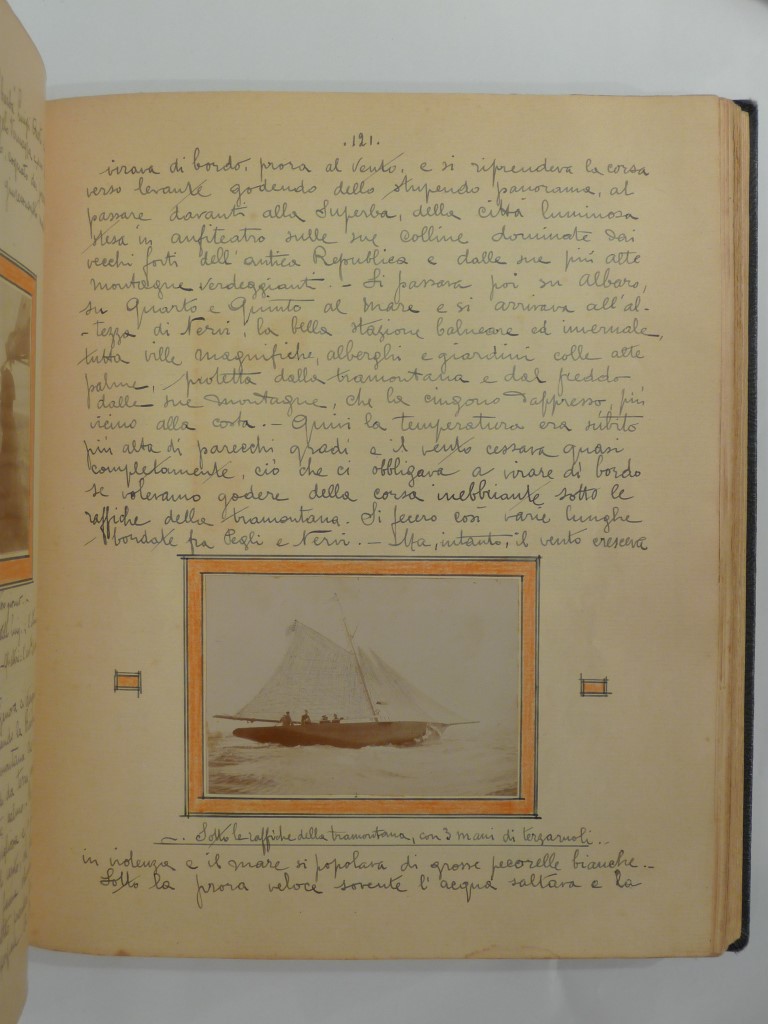 .121.
virava di bordo, prora al vento, e si riprendeva la corsa
verso levante godendo dello stupendo panorama, al
passare davanti alla Superba, della città luminosa
stesa in anfiteatro sulle sue colline dominate dai
vecchi forti dell'antica Repubblica e dalle sue più alte
montagne verdeggianti. - Si passava poi su Albaro,
su Quarto e Quinto al Mare e si arrivava all'al-
-tezza di Nervi, la bella stazione balneare ed invernale,
tutta ville magnifiche, alberghi e giardini colle alte
palme, protetta dalla tramontana e dal freddo
dalle sue montagne, che la cingono dappresso, più
vicino alla costa. - Quivi la temperatura era sùbito
più alta di parecchi gradi e il vento cessava quasi
completamente, ciò che ci obbligava a virare di bordo
se volevamo godere della corsa inebbriante sotto le
raffiche della tramontana. Si fecero così varie lunghe
bordate fra Pegli e Nervi. - Ma, intanto, il vento cresceva
Sotto le raffiche della tramontana, con 3 mani di terzaruoli..
in violenza e il mare si popolava di grosse pecorelle bianche. -
Sotto la prora veloce sovente l'acqua saltava e la